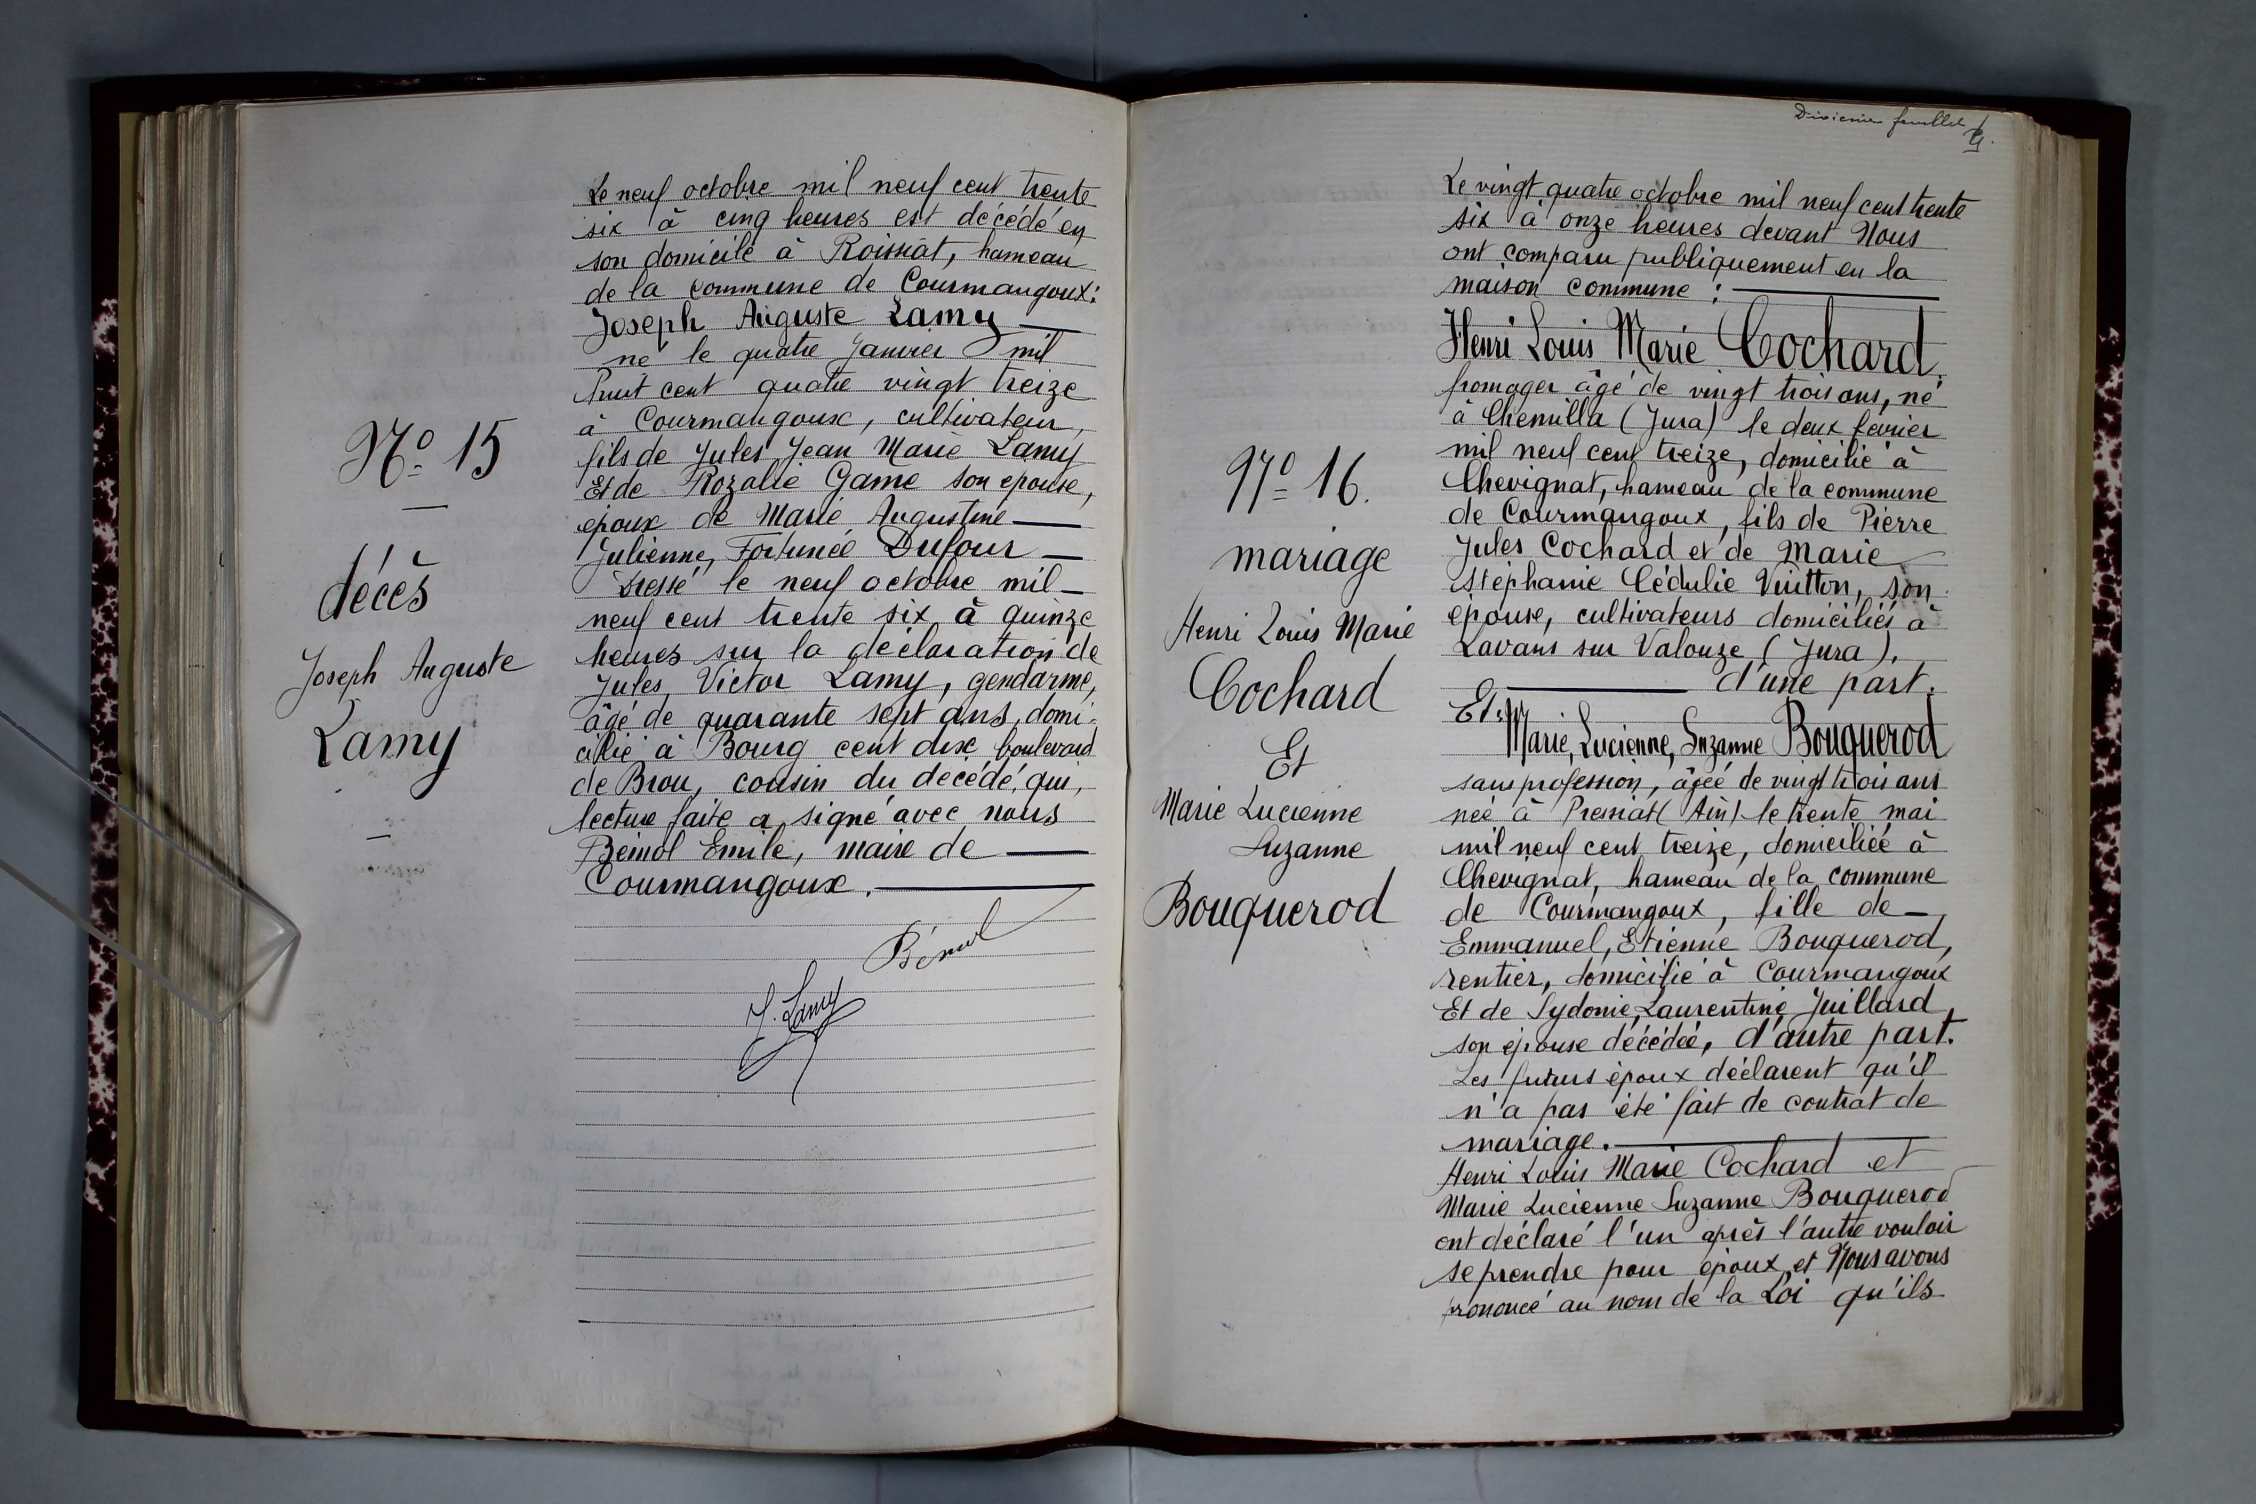 N° 15
décès
Joseph Auguste
Lamy
Le neuf octobre mil neuf cent trente
six à cinq heures est décédé en
son domicile à Roissiat, hameau
de la commune de Courmangoux:
Joseph Auguste Lamy
né le quatre Janvier mil
huit cent quatre vingt treize
à Courmangoux, cultivateur,
fils de Jules Jean Marie Lamy
Et de Rozalie Game son épouse,
époux de Marie Augustine
Julienne, Fortunée Dufour
Dressé le neuf octobre mil
neuf cent trente six à quinze
heures sur la déclaration de
Jules, Victor Lamy, gendarme,
âgé de quarante sept ans, domi-
cilié à Bourg cent dix boulevard
de Brou, cousin du décédé, qui,
lecture faite a signé avec nous
Bénol Emile, maire de
Courmangoux.
Bénol
J. Lamy
feuillet
N° 16.
mariage
Henri Louis Marie
Cochard
Et
Marie Lucienne
Suzanne
Bouquerod
Le vingt quatre octobre mil neuf cent trente
six à onze heures devant Nous
ont comparu publiquement en la
maison commune :
Henri Louis Marie Cochard,
fromager âgé de vingt trois ans, né
à Chemilla (Jura) le deux février
mil neuf cent treize, domicilié à
Chevignat, hameau de la commune
de Courmangoux, fils de Pierre
Jules Cochard et de Marie
Stéphanie Cédulie Vuitton, son
épouse, cultivateurs domiciliés à
Lavans sur Valouze (Jura),
d'une part.
Et. Marie, Lucienne, Suzanne Bouquerod
sans profession, âgée de vingt trois ans
née à Pressiat (Ain) le trente mai
mil neuf cent treize, domiciliée à
Chevignat, hameau de la commune
de Courmangoux, fille de
Emmanuel, Etienne Bouquerod,
rentier, domicilié à Courmangoux
Et de Sydonie, Laurentine Juillard
son épouse décédée, d'autre part.
Les futurs époux déclarent qu'il
n'a pas été fait de contrat de
mariage.
Henri Louis Marie Cochard et
Marie Lucienne Suzanne Bouquerod
ont déclaré l'un après l'autre vouloir
se prendre pour époux et Nous avons
prononcé au nom de la Loi qu'ils